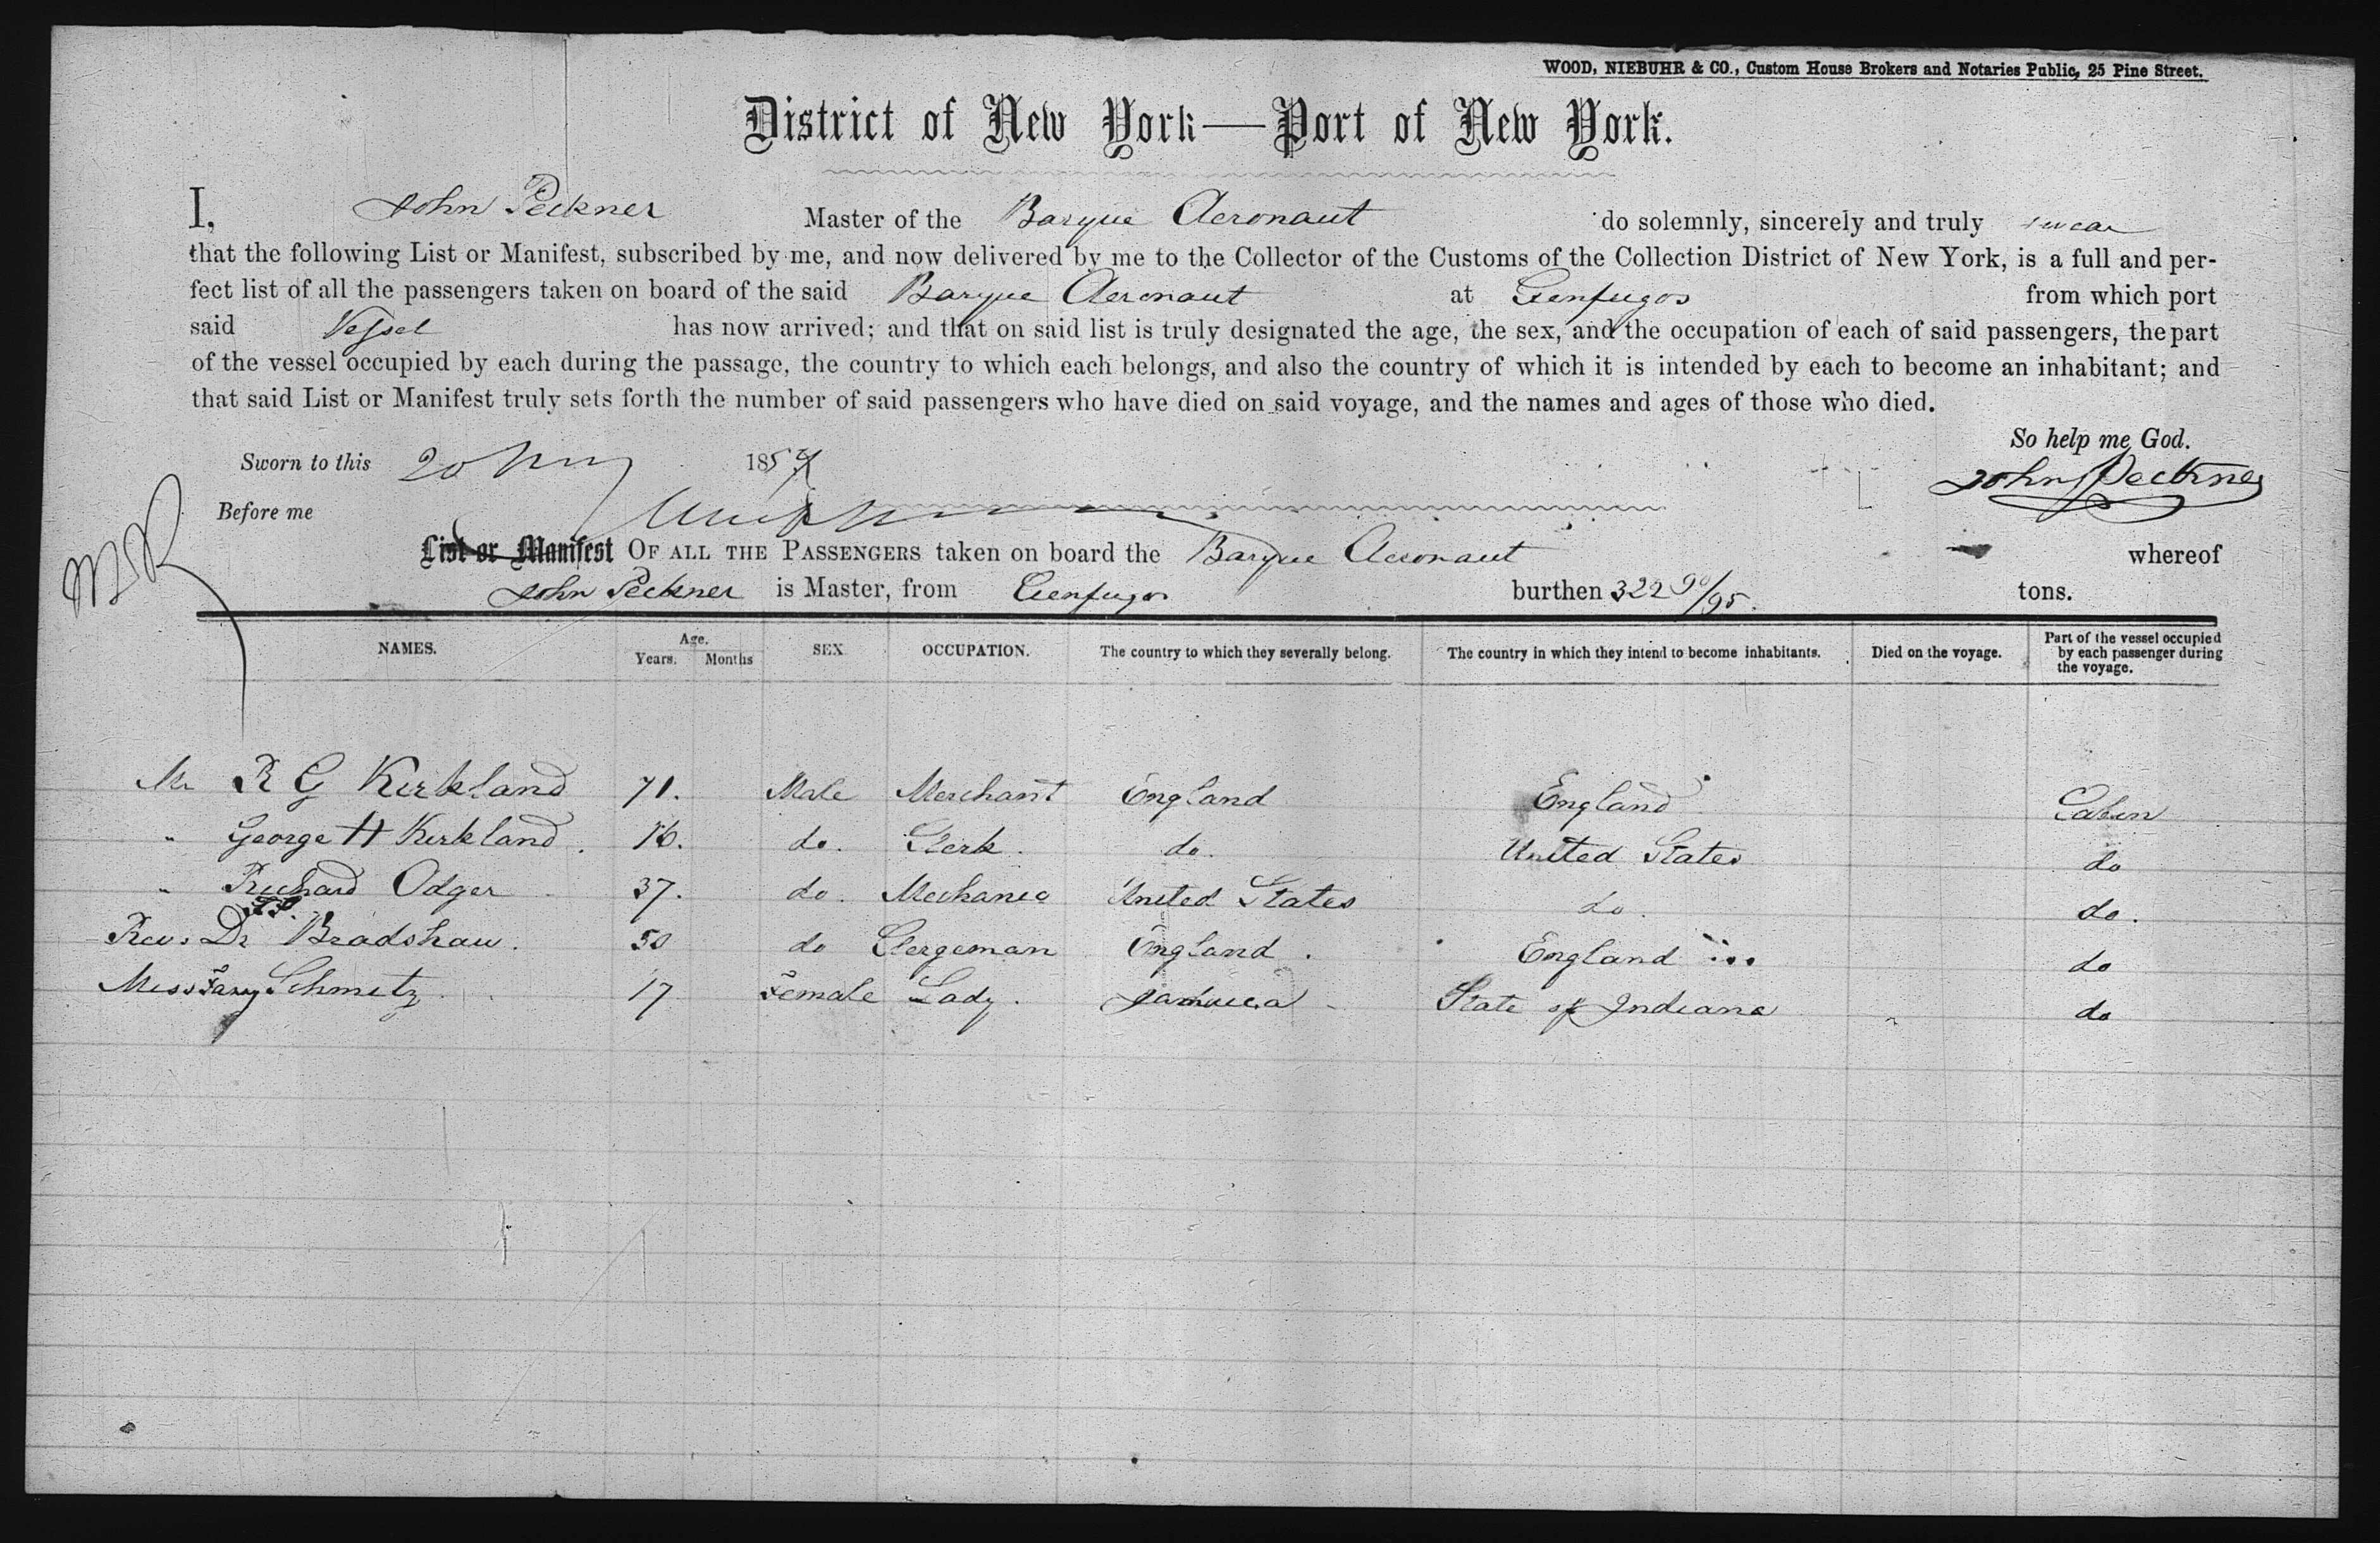 WOOD, NIEBUHR & CO., Custom House Brokers and Notaries Public, 25 Pine Street.
District of New York—Port of New York.
I, John Peckner Master of the Barque Aeronaut do solemnly, sincerely and truly swear
that the following List or Manifest, subscribed by me, and now delivered by me to the Collector of the Customs of the Collection District of New York, is a full and per-
fect list of all the passengers taken on board of the said Barque Aeronaut at Cienfugos from which port
said Vessel has now arrived; and that on said list is truly designated the age, the sex, and the occupation of each of said passengers, the part
of the vessel occupied by each during the passage, the country to which each belongs, and also the country of which it is intended by each to become an inhabitant; and
that said List or Manifest truly sets forth the number of said passengers who have died on said voyage, and the names and ages of those who died.
So help me God.
Sworn to this 20 185
John Peckner
Before me
List or Manifest OF ALL THE PASSENGERS taken on board the Barque Aeronaut whereof
John Peckner is Master, from Cienfugos burthen 322 90/95 tons.
NAMES. Age. Years. Months SEX. OCCUPATION. The country to which they severally belong. The country in which they intend to become inhabitants. Died on the voyage. Part of the vessel occupied by each passenger during the voyage.
Mr R G Kirkland 71. Male Merchant England England Cabin
" George H Kirkland. 16. do. Clerk. do. United States do
" Richard Odger 37. do. Mechanic United States do. do.
Rev. Dr Bradshaw. 50 do Clergeman England. England do
Miss Fany Schmetz 17 Female Lady. Jamaica State of Indiana do